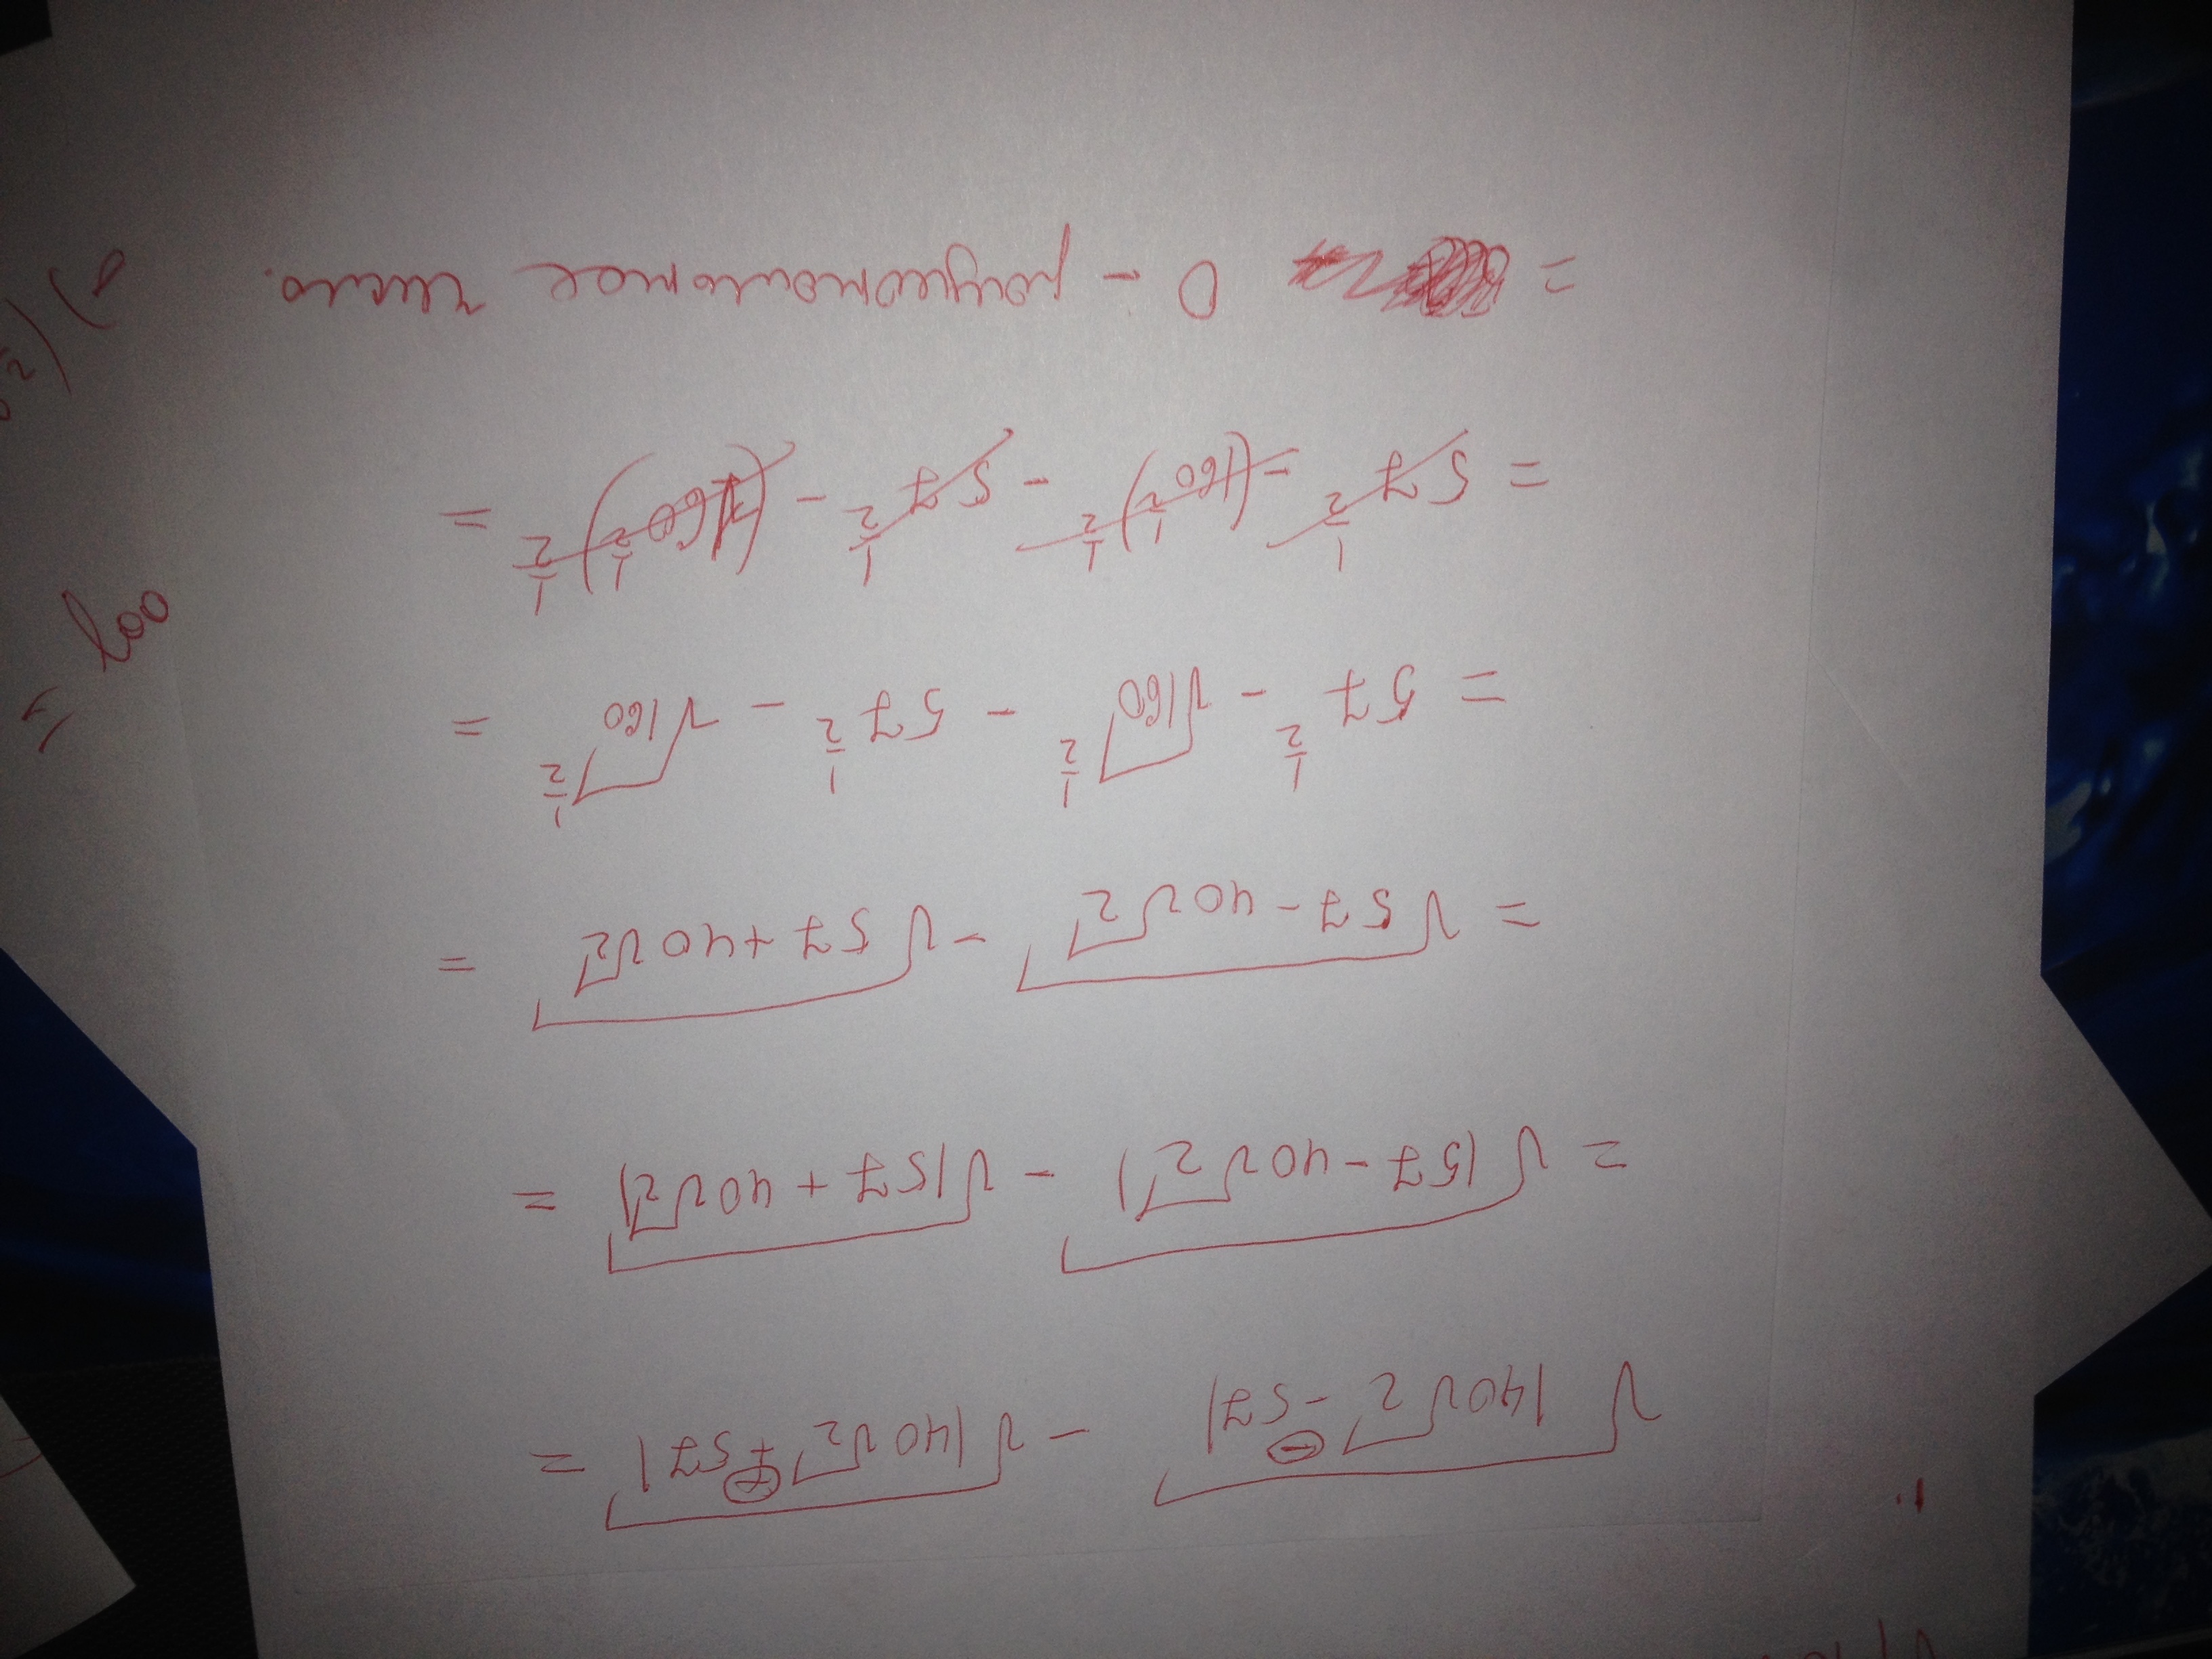 √|40√2 - 57| - √|40√2 + 57| =
= √|57 - 40√2| - √|57 + 40√2| =
= √57 - 40√2 - √57 + 40√2 =
= 57^1/2 - √160^1/2 - 57^1/2 - √160^1/2 =
= 57^1/2 - (160^1/2)^1/2 - 57^1/2 - (160^1/2)^1/2 =
= 0 - рациональное число.